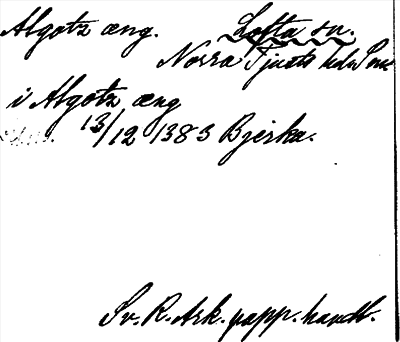 Algotz æng. Lofta sn.
Norra Tjusts hd
i Algotz æng
13/12 1383 Bjerka.
Sv. R. Ark. papp. handl.